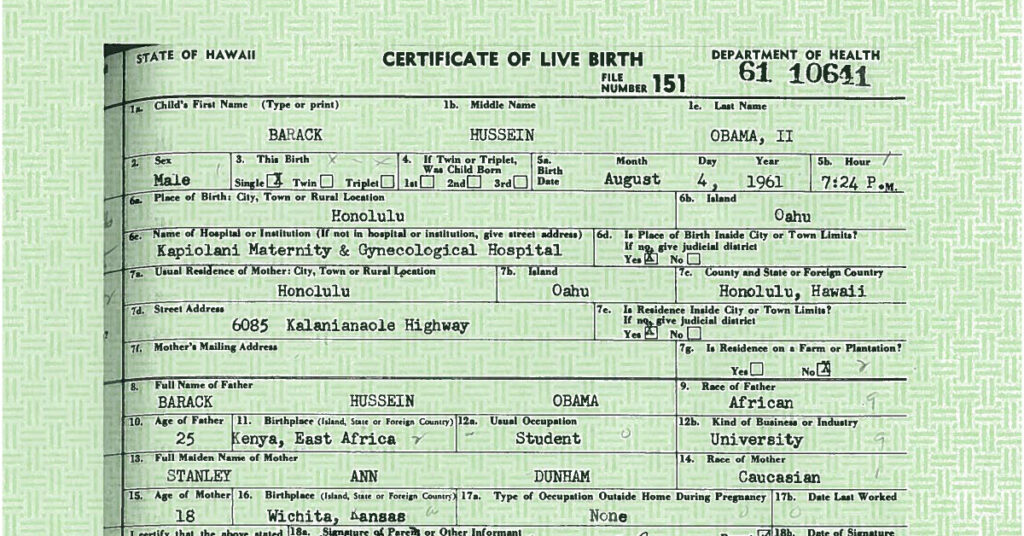 STATE OF HAWAII CERTIFICATE OF LIVE BIRTH DEPARTMENT OF HEALTH
FILE NUMBER 151 61 10641
1a. Child's First Name (Type or print) 1b. Middle Name 1c. Last Name
BARACK HUSSEIN OBAMA, II
2. Sex 3. This Birth 4. If Twin or Triplet, Was Child Born 5a. Birth Date Month Day Year 5b. Hour
Male Single X Twin Triplet 1st 2nd 3rd August 4, 1961 7:24 P.M.
6a. Place of Birth: City, Town or Rural Location 6b. Island
Honolulu Oahu
6c. Name of Hospital or Institution (If not in hospital or institution, give street address) 6d. Is Place of Birth Inside City or Town Limits?
If no, give judicial district
Kapiolani Maternity & Gynecological Hospital Yes X No
7a. Usual Residence of Mother: City, Town or Rural Location 7b. Island 7c. County and State or Foreign Country
Honolulu Oahu Honolulu, Hawaii
7d. Street Address 7e. Is Residence Inside City or Town Limits?
If no, give judicial district
6085 Kalanianaole Highway Yes X No
7f. Mother's Mailing Address 7g. Is Residence on a Farm or Plantation?
Yes No X 2
8. Full Name of Father 9. Race of Father
BARACK HUSSEIN OBAMA African 9
10. Age of Father 11. Birthplace (Island, State or Foreign Country) 12a. Usual Occupation 12b. Kind of Business or Industry
25 Kenya, East Africa 2 Student 0 University 9
13. Full Maiden Name of Mother 14. Race of Mother
STANLEY ANN DUNHAM Caucasian 1
15. Age of Mother 16. Birthplace (Island, State or Foreign Country) 17a. Type of Occupation Outside Home During Pregnancy 17b. Date Last Worked
18 Wichita, Kansas None
I certify that the above stated 18a. Signature of Parent or Other Informant 18b. Date of Signature